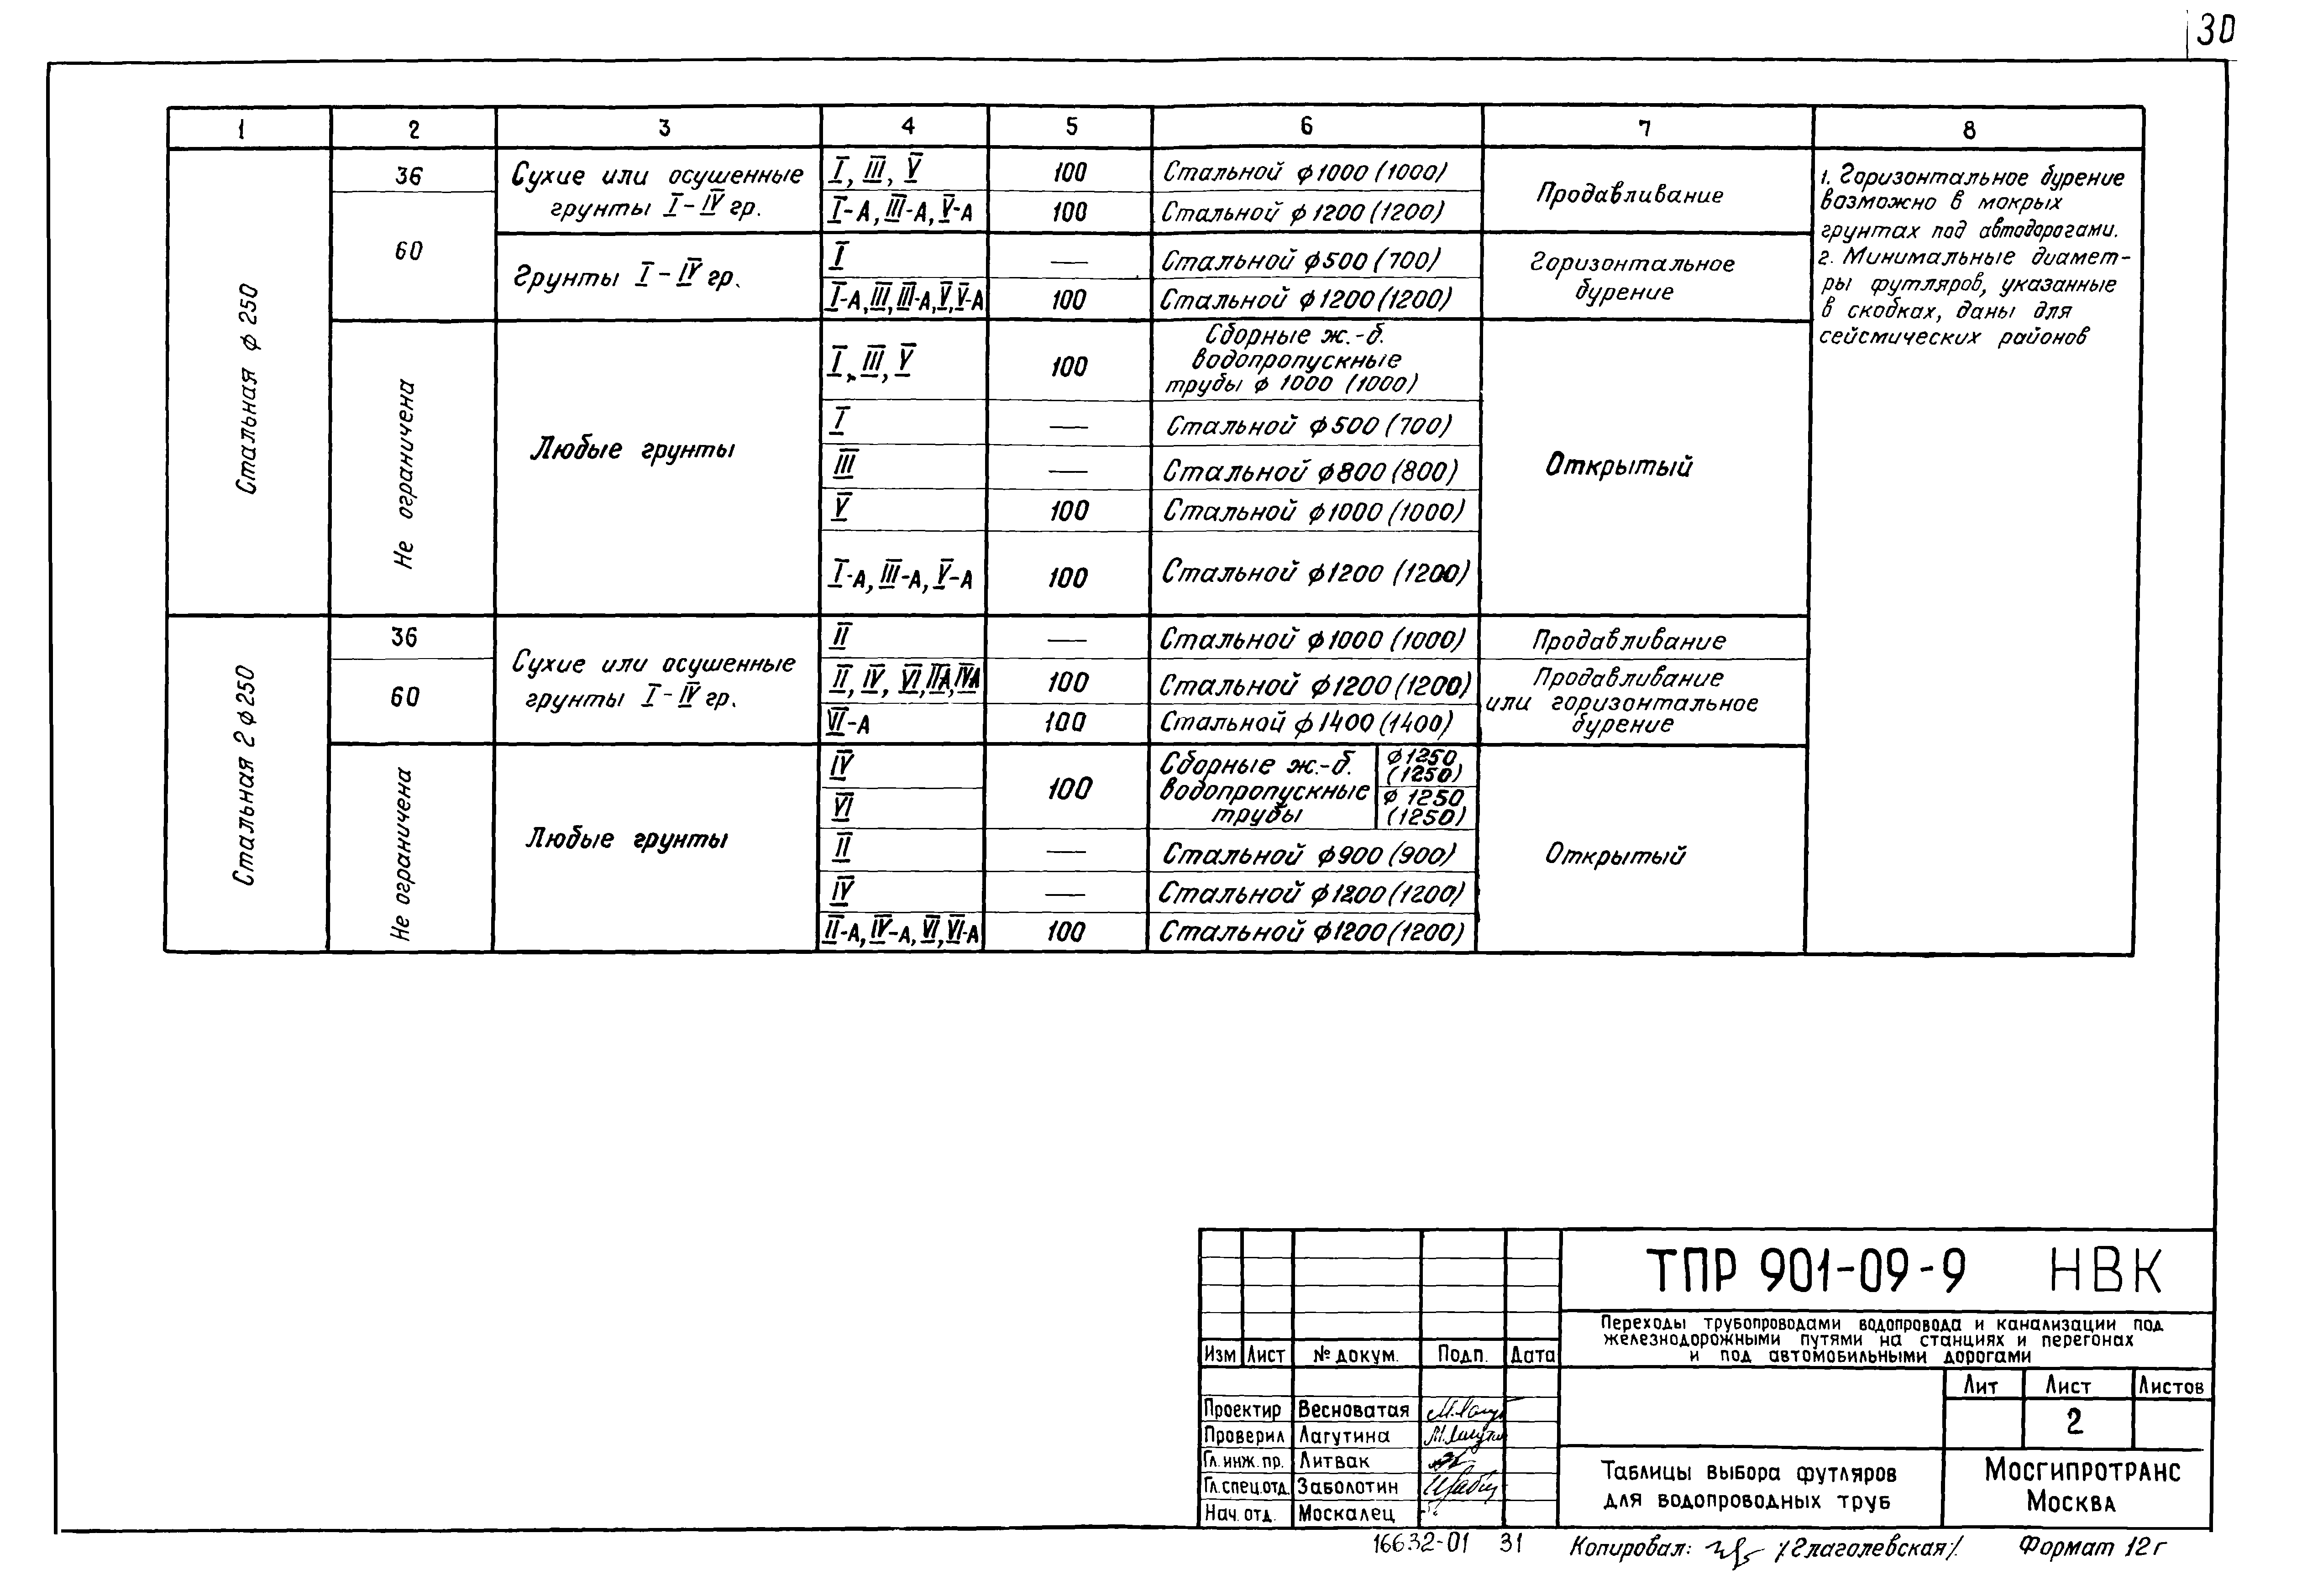 30
1 2 3 4 5 6 7 8
Стальная ф 250
36
60
Не ограничена
Сухие или осушенные
грунты I-IV гр.
I, III, V 100 Стальной ф1000 (1000)
I-А, III-А, V-А 100 Стальной ф1200 (1200)
Продавливание
Грунты I-IV гр.
I — Стальной ф500 (700)
I-А, III, III-А, V, V-А 100 Стальной ф1200 (1200)
Горизонтальное
бурение
Любые грунты
I, III, V 100
Сборные ж.-б.
водопропускные
трубы ф 1000 (1000)
I — Стальной ф500 (700)
III — Стальной ф800 (800)
V 100 Стальной ф1000 (1000)
I-А, III-А, V-А 100 Стальной ф1200 (1200)
Открытый
1. Горизонтальное бурение
возможно в мокрых
грунтах под автодорогами.
2. Минимальные диамет-
ры футляров, указанные
в скобках, даны для
сейсмических районов
Стальная 2 ф 250
36
60
Не ограничена
Сухие или осушенные
грунты I-IV гр.
II — Стальной ф1000 (1000) Продавливание
II, IV, VI, IIА, IVА 100 Стальной ф1200 (1200)
VI-А 100 Стальной ф1400 (1400)
Продавливание
или горизонтальное
бурение
Любые грунты
IV
VI
100
Сборные ж.-б.
водопропускные
трубы
ф1250
(1250)
ф 1250
(1250)
II — Стальной ф900 (900)
IV — Стальной ф1200 (1200)
II-А, IV-А, VI, VI-А 100 Стальной ф1200 (1200)
Открытый
ТПР 901-09-9 НВК
Переходы трубопроводами водопровода и канализации под
железнодорожными путями на станциях и перегонах
и под автомобильными дорогами
Изм Лист № докум. Подп. Дата
Лит Лист Листов
2
Проектир Весноватая
Проверил Лагутина
Гл. инж. пр. Литвак
Гл. спец. отд. Заболотин
Нач. отд. Москалец
Таблицы выбора футляров
для водопроводных труб
Мосгипротранс
Москва
16632-01 31 Копировал: /Глаголевская/. Формат 12г